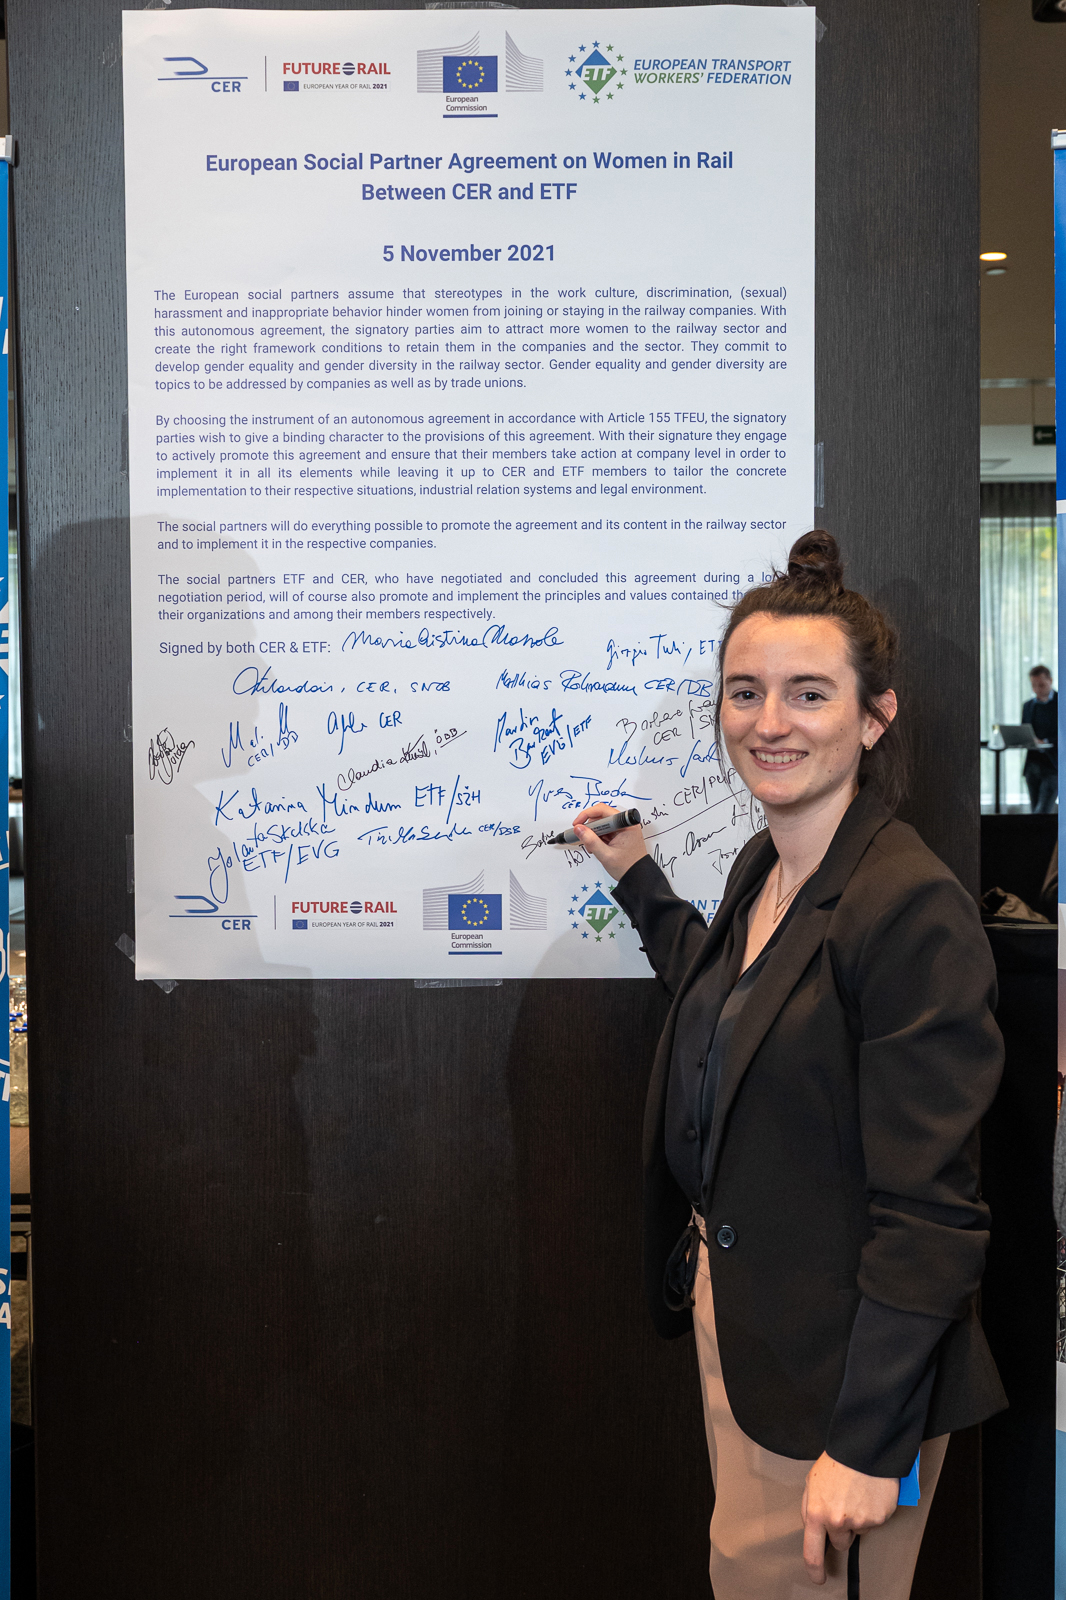 CER
FUTURE RAIL
EUROPEAN YEAR OF RAIL 2021
European
Commission
ETF
EUROPEAN TRANSPORT
WORKERS' FEDERATION
European Social Partner Agreement on Women in Rail
Between CER and ETF
5 November 2021
The European social partners assume that stereotypes in the work culture, discrimination, (sexual)
harassment and inappropriate behavior hinder women from joining or staying in the railway companies. With
this autonomous agreement, the signatory parties aim to attract more women to the railway sector and
create the right framework conditions to retain them in the companies and the sector. They commit to
develop gender equality and gender diversity in the railway sector. Gender equality and gender diversity are
topics to be addressed by companies as well as by trade unions.
By choosing the instrument of an autonomous agreement in accordance with Article 155 TFEU, the signatory
parties wish to give a binding character to the provisions of this agreement. With their signature they engage
to actively promote this agreement and ensure that their members take action at company level in order to
implement it in all its elements while leaving it up to CER and ETF members to tailor the concrete
implementation to their respective situations, industrial relation systems and legal environment.
The social partners will do everything possible to promote the agreement and its content in the railway sector
and to implement it in the respective companies.
The social partners ETF and CER, who have negotiated and concluded this agreement during a
negotiation period, will of course also promote and implement the principles and values contained
their organizations and among their members respectively.
Signed by both CER & ETF:
ETF
CER, SNCB
Matthias CER/DB
CER/DB
CER
Martin
EVG/ETF
Barbara
CER
Claudia ÖBB
Markus
Katarina Mindum ETF/SŽH
Yves
CER
CER/PKP
Jolanta Skalska
ETF/EVG
CER/DSB
CER
FUTURE RAIL
EUROPEAN YEAR OF RAIL 2021
European
Commission
ETF